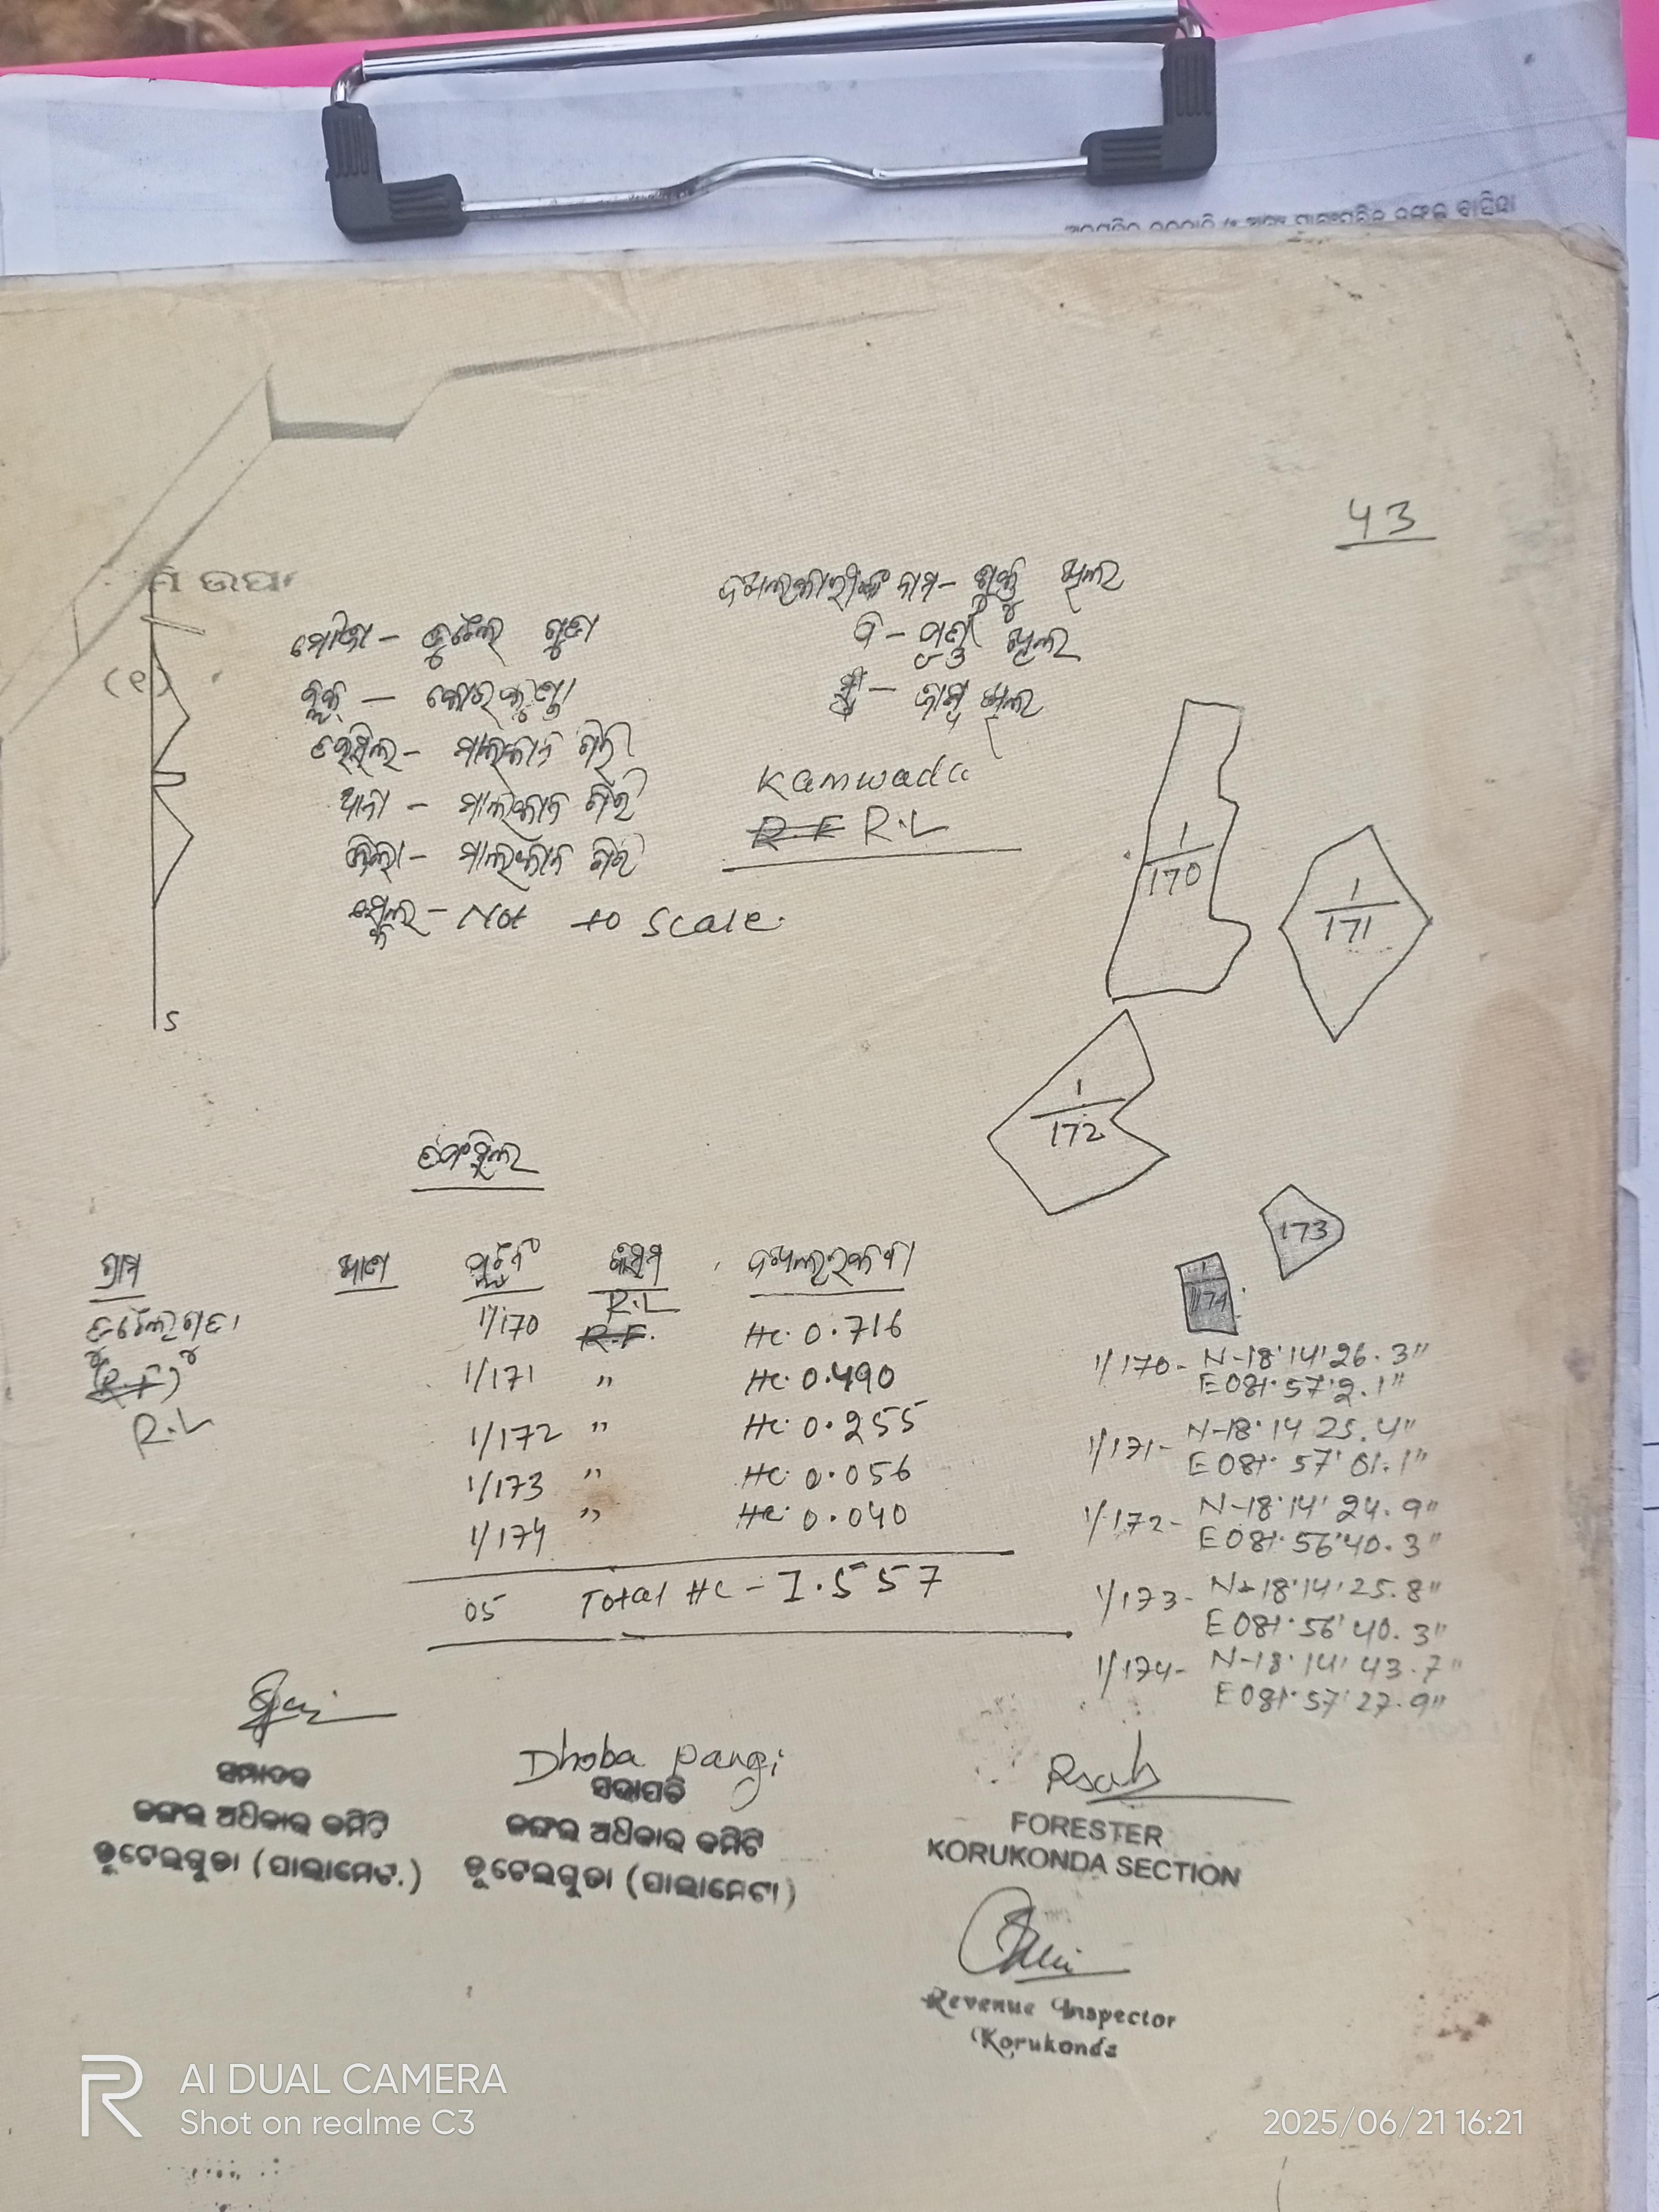 43
ମି ଉପ
(୧)
ଦଖଲକାରୀଙ୍କ ନାମ - ଖିଲର
ମୌଜା - ଡୁଟେଲ ଗୁଡା
ବି - ଖିଲର
ବ୍ଲକ୍ - କୋରକୁଣ୍ଡା
ଖିଲର
ତହସିଲ - ମାଲକାନ ଗିରୀ
ଥାନା - ମାଲକାନ ଗିରି
ଜିଲା - ମାଲକାନ ଗିରି
Kamwada
R.F R.L
ସ୍କେଲ - Not to Scale.
S
1/170
1/171
1/172
173
1/174
ତଫସିଲ
ଗ୍ରାମ ଖାତା ପ୍ଲଟ ନଂ କିସମ ଦଖଲ ରକବା
ଡୁଟେଲଗୁଡା 1/170 R.L R.F. Hc. 0.716
(R.F) 1/171 " Hc. 0.490
R.L 1/172 " Hc. 0.255
1/173 " Hc. 0.056
1/174 " Hc. 0.040
05 Total Hc - 1.557
1/170- N-18°14'26.3"
E081°57'2.1"
1/171- N-18°14 25.4"
E081°57'01.1"
1/172- N-18°14'24.9"
E081°56'40.3"
1/173- N-18°14'25.8"
E081°56'40.3"
1/174- N-18°14'43.7"
E081°57'27.9"
Dhoba Pangi
ସମ୍ପାଦକ
ଜଙ୍ଗଲ ଅଧିକାର କମିଟି
ଡୁଟେଲଗୁଡା (ପାଲାମେଟ.)
ସଭାପତି
ଜଙ୍ଗଲ ଅଧିକାର କମିଟି
ଡୁଟେଲଗୁଡା (ପାଲାମେଟା)
FORESTER
KORUKONDA SECTION
Revenue Inspector
Korukonda
AI DUAL CAMERA
Shot on realme C3
2025/06/21 16:21